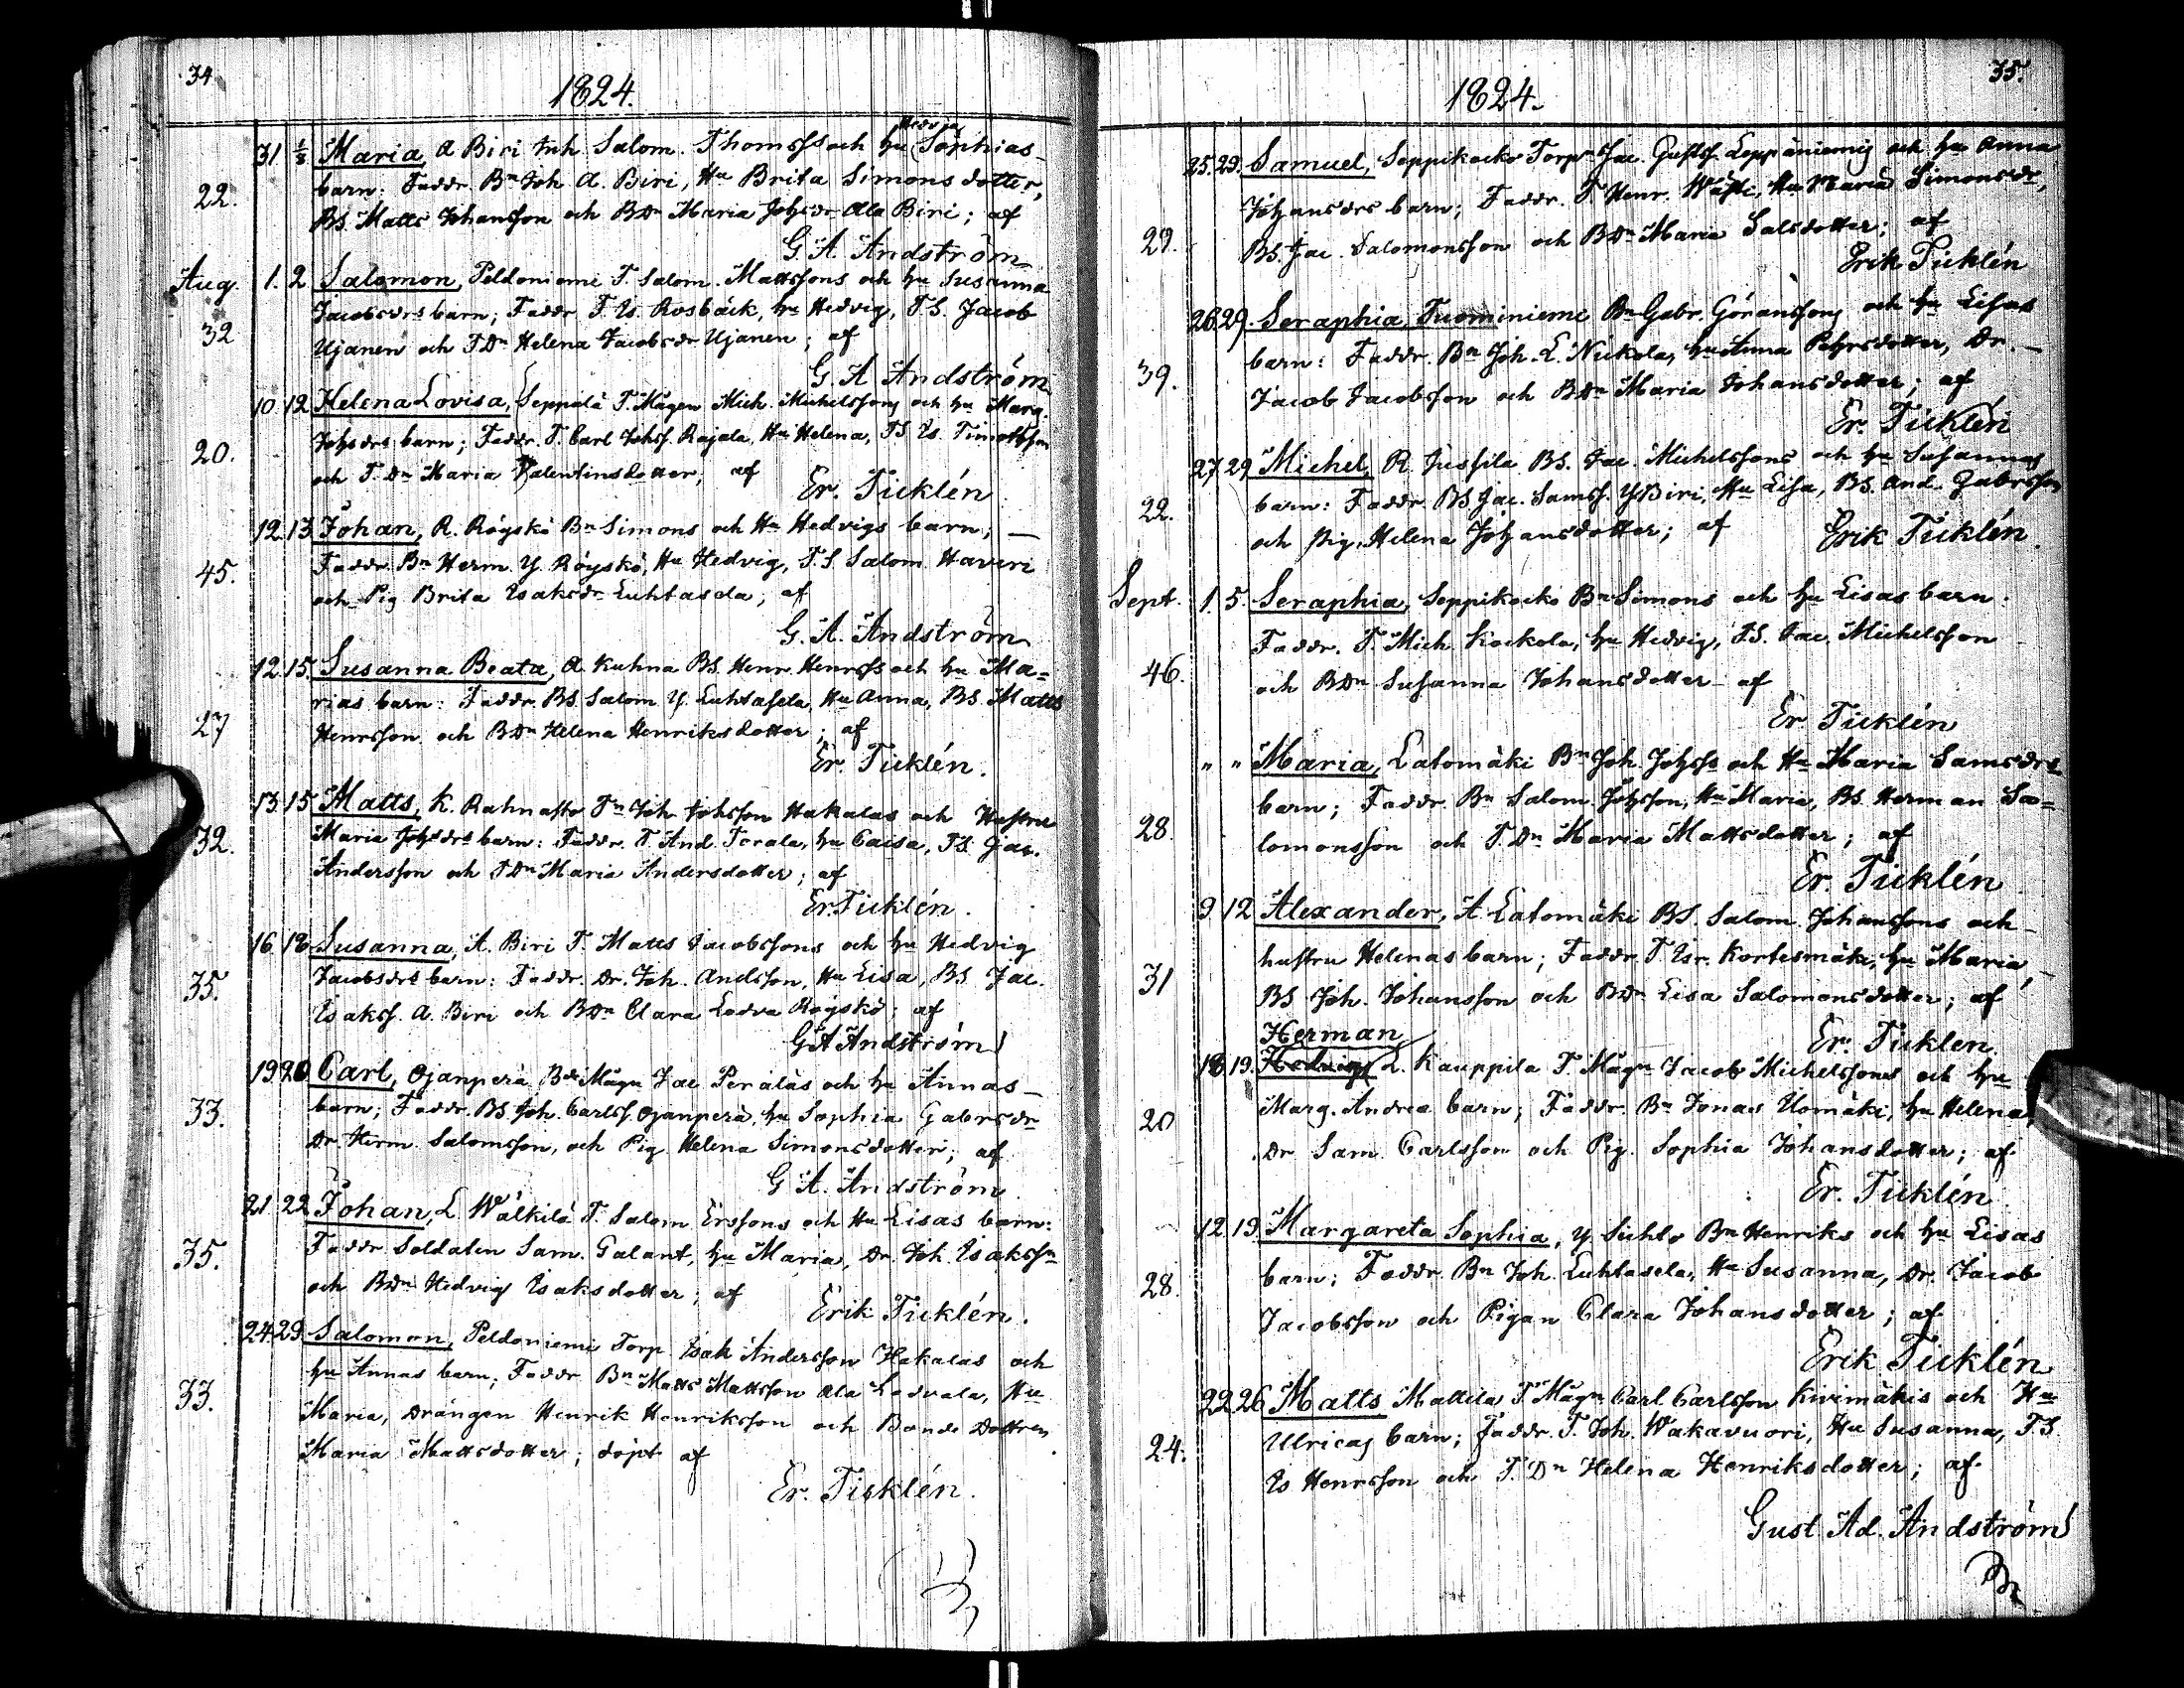 34
1824.
Hedvig
31 1/8 Maria, A Biri Inh Salom. Thomsss och hu Sophias
22. barn: Faddr. Bn Joh A. Biri, Hu Brita Simons dotter,
BS. Matts Johansson och BDn Maria Johsdr Ala Biri; af
G. A. Andström
Aug. 1. 2 Salomon, Peldoniemi T. Salom. Mattssons och hu Susanna
Jacobsdrs barn; Faddr. T. Is. Rosbäck, hu Hedvig, TS. Jacob
32 Ujanen och TDn Helena Jacobsdr Ujanen; af
G. A Andström
10 12 Helena Lovisa, Seppälä T. Mågen Mich. Michelssons och hu Marg.
20. Johsdrs barn; Faddr. T. Carl Johss. Rajala, Hu Helena, TS Is. Timothsson
och T. Dn Maria Valentinsdotter; af
Er. Ticklén
12 13 Johan, R. Röyskö Bn Simons och Hu Hedvigs barn;
45. Faddr. Bn Herm. Y. Röyskö, Hu Hedvig, T.S. Salom. Haveri
och Pig Brita Isaksdr Luhtasela; af
G. A. Andström
12 15. Susanna Beata, A Kuhna BS. Henr. Henrsss och hu Ma=
27 rias barn: Faddr. BS. Salom Y. Luhtasela, Hu Anna, BS. Matts
Henrsson och BDn Helena Henriksdotter; af
Er. Ticklén.
13 15 Matts, K. Rahnasto Tn Joh Johsson Hakalas och Hustru
32. Maria Johsdrs barn: Faddr. T. And. Terala, hu Caisa, TS. Jac.
Andersson och TDn Maria Andersdotter; af
Er. Ticklén.
16. 18 Susanna, A. Biri T. Matts Jacobssons och hu Hedvig
35. Jacobsdrs barn: Faddr. Dr. Joh. Andsson, Hu Lisa, BS. Jac.
Isakss. A. Biri och BDn Clara Ladva Röyskö; af
G A Andström
19 20 Carl, Ojanperä Bde Mågn Jac Peralas och hu Annas
33. barn; Faddr. BS. Joh. Carlss. Ojanperä, hu Sophia Gabrsdr
Dr. Herm. Salomsson, och Pig Helena Simonsdotter; af
G A. Andström
21. 22 Johan, L. Wälkilä T. Salom Erssons och Hu Lisas barn:
35. Faddr. Soldaten Sam. Galant, hu Maria, Dr. Joh. Isakssn
och BDn Hedvig Isaksdotter; af
Erik Ticklén.
24. 29. Salomon, Peldoniemi Torp Isak Andersson Hakalas och
33. hu Annas barn; Faddr. Bn Matts Mattsson Ala Ladvala, Hu
Maria, Drängen Henrik Henriksson och Bonde Dottren
Maria Mattsdotter; döpt af
Er. Ticklén.
35.
1824.
25. 29. Samuel, Seppikockö Torpn Jac. Gustfs. Leppäniemis och hu Anna
29. Johansdrs barn; Faddr. T. Henr. Hu Maria Simonsdr,
BS. Jac. Salomonsson och BDn Maria Salsdotter; af
Erik Ticklén
26. 29. Seraphia, Tuominieme Bn Gabr. Göranssons och hu Lisas
39. barn: Faddr. Bn Joh. L. Nickola, hu Anna Pehrsdotter, Dr.
Jacob Jacobsson och BDn Maria Johansdotter; af
Er. Ticklén
27 29 Michel, R. Jussila BS. Jac. Michelssons och hu Susannas
22. barn: Faddr. BS Jac. Samss. Y Biri, Hu Lisa, BS. And. Gabrsson
och pig. Helena Johansdotter; af
Erik Ticklén.
Sept. 1. 5. Seraphia, Seppikockö Bn Simons och hu Lisas barn:
Faddr. T. Mich Kockola, hu Hedvig, TS. Jac. Michelsson
46. och BDn Susanna Johansdotter af
Er Ticklén
" " Maria, Latomäki Bn Joh. Johsss och Hu Maria Samsdrs
28. barn; Faddr. Bn Salom. Johsson, Hu Maria, BS. Herman Sa=
lomonsson och T. Dn Maria Mattsdotter; af
Er. Ticklén
9 12 Alexander, A. Latomäki BS. Salom. Johanssons och
31 hustru Helenas barn; Faddr. T. Isr. Kortesmäki, hu Maria,
BS Joh. Johansson och BDn Lisa Salomonsdotter; af
Er. Ticklén
Herman
18 19. Hedvig, L. Kauppila T. Mågn Jacob Michelssons och hu
20 Marg. Andrea barn; Faddr. Bn Jonas Uomäki, hu Helena,
Dr Sam. Carlsson och Pig. Sophia Johansdotter; af
Er. Ticklén
12 19. Margareta Sophia, Y. Bn Henriks och hu Lisas
28. barn; Faddr. Bn Joh. Luhtasela, Hu Susanna, Dr. Jacob
Jacobsson och Pigan Clara Johansdotter; af
Erik Ticklén
22 26 Matts Mattila T. Mågn Carl Carlsson Kivimäkis och Hu
24. Ulricas barn; Faddr. T. Joh. Wakavuori, Hu Susanna, T.S.
Is Henrsson och T. Dn Helena Henriksdotter; af
Gust. Ad. Andström